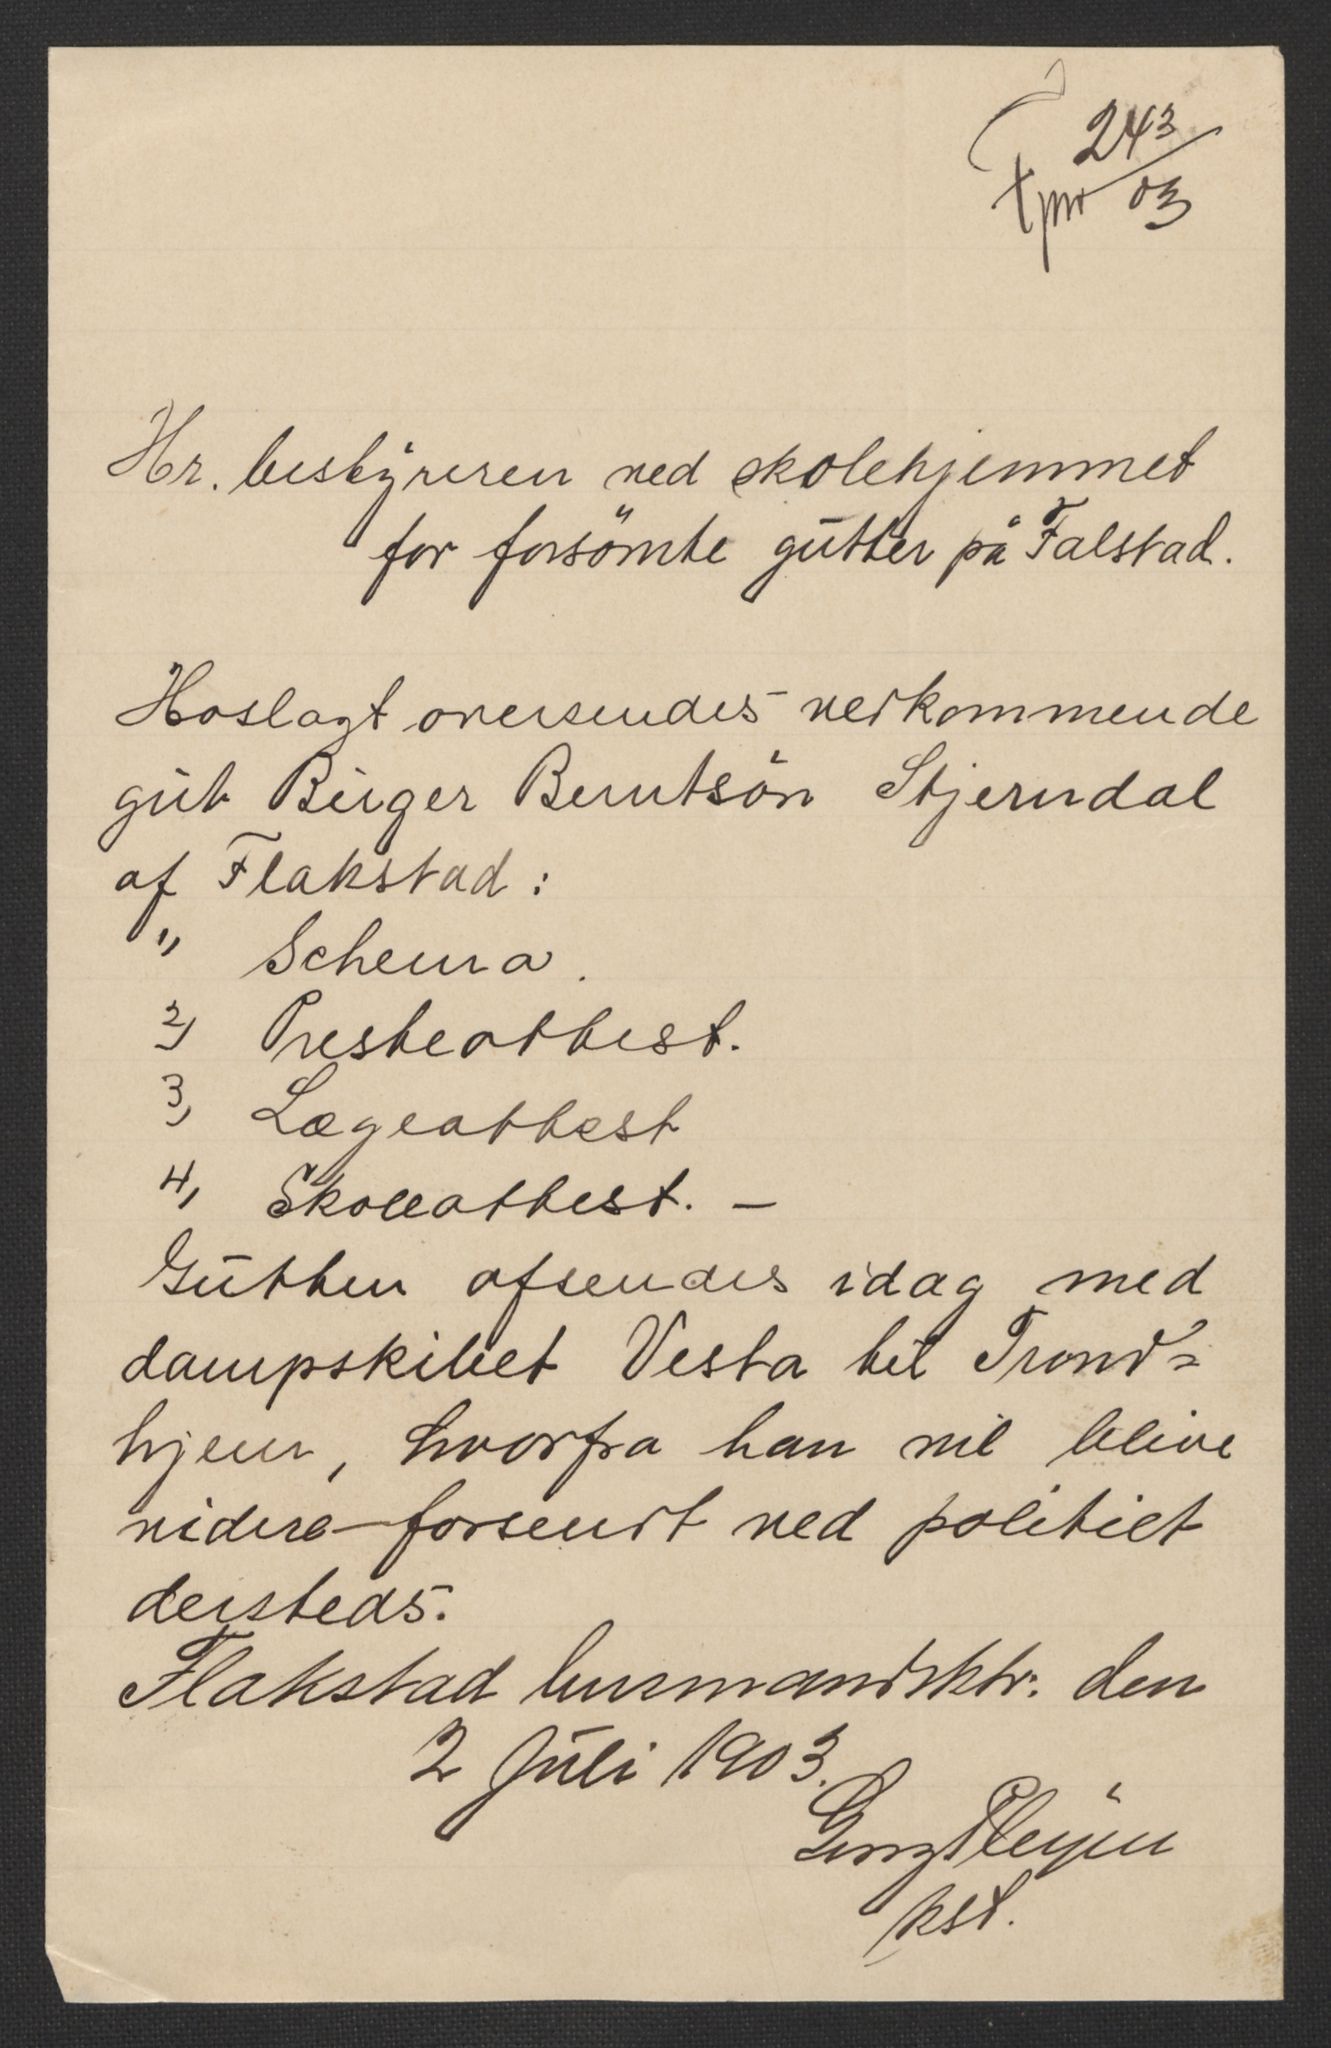 243
03
Hr. bestyreren ved skolehjemmet
for forsömte gutter på Falstad.
Hoslagt oversendes vedkommende
gut Birger Berntsön Stjerndal
af Flakstad:
1, Schema.
2, Presteattest.
3, Lægeattest
4, Skoleattest. —
Gutten afsendes idag med
dampskibet Vesta til Trond=
hjem, hvorfra han vil blive
videre forsendt ved politiet
dersteds.
Flakstad lensmandsktr: den
2 Juli 1903.
kst.